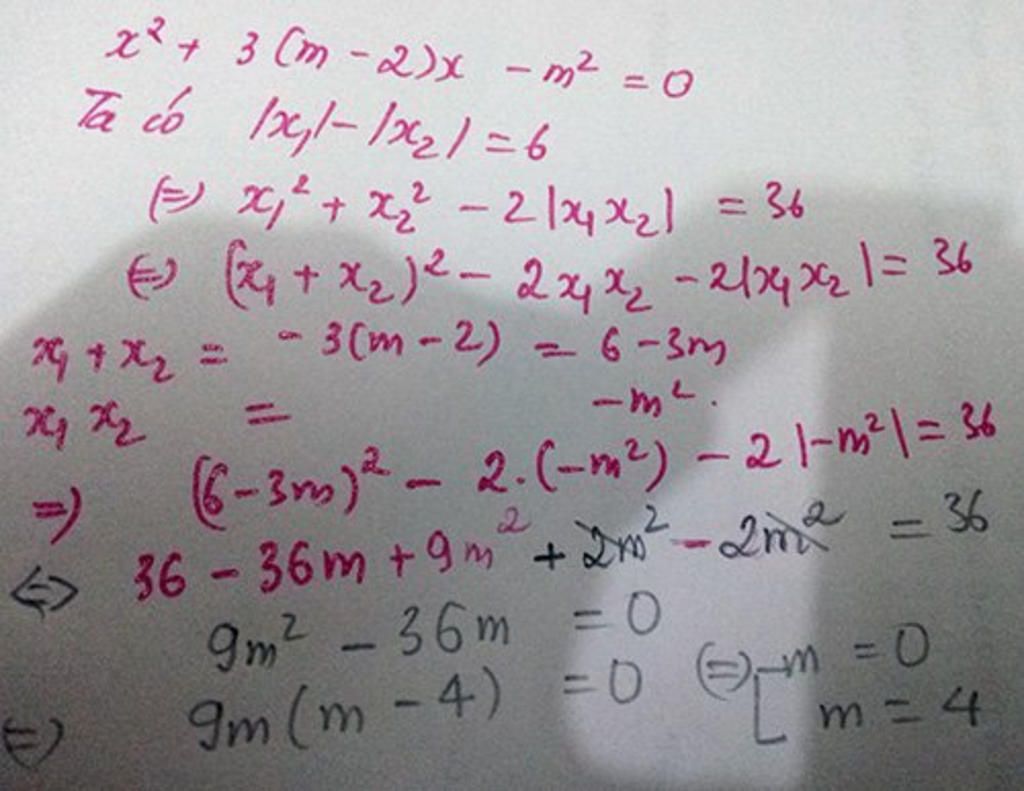 x² + 3(m - 2)x - m² = 0
Ta có |x₁| - |x₂| = 6
(=) x₁² + x₂² - 2|x₁x₂| = 36
(=) (x₁ + x₂)² - 2x₁x₂ - 2|x₁x₂| = 36
x₁ + x₂ = - 3(m - 2) = 6 - 3m
x₁ x₂ = -m².
=) (6 - 3m)² - 2.(-m²) - 2|-m²| = 36
<=> 36 - 36m + 9m² + 2m² - 2m² = 36
9m² - 36m = 0
=) 9m(m - 4) = 0 (=) [ m = 0
m = 4